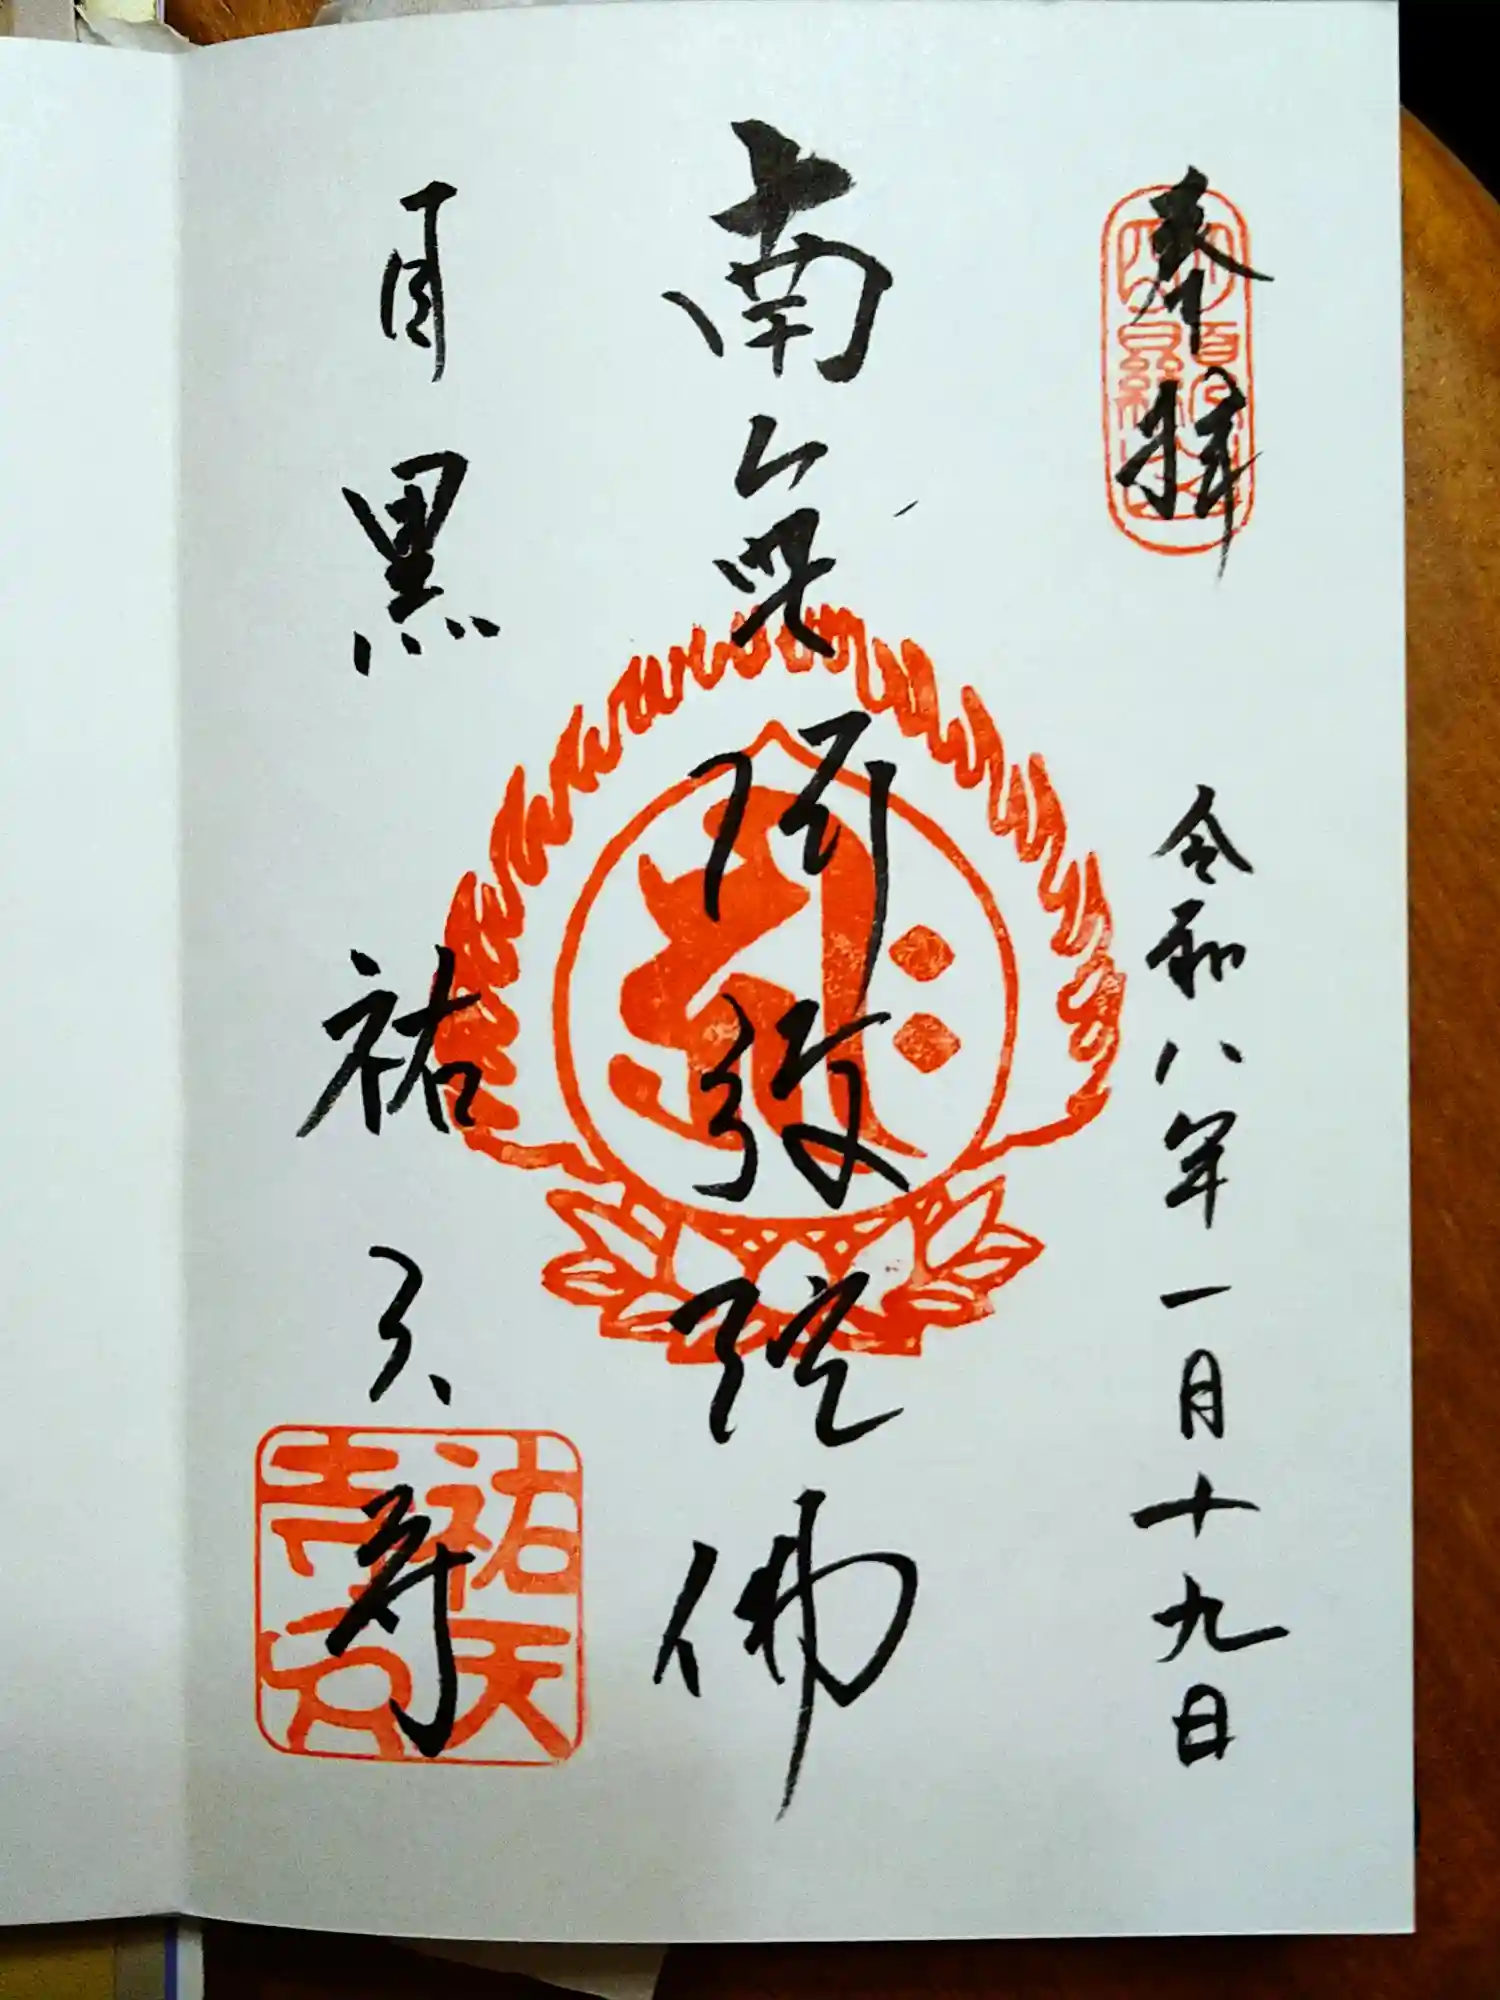 奉拝
令和八年一月十九日
南無阿弥陀佛
目黒
祐天寺
祐天